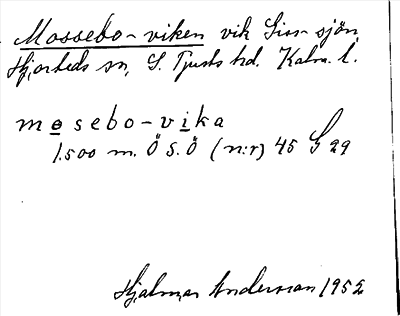 Mossebo-viken vik Siss-sjön,
Hjorteds sn, S. Tjusts hd. Kalm. l.
mosebo-vika
1.500 m. Ö S. Ö (n:r) 45 G 29
Hjalmar Anderssan 1952